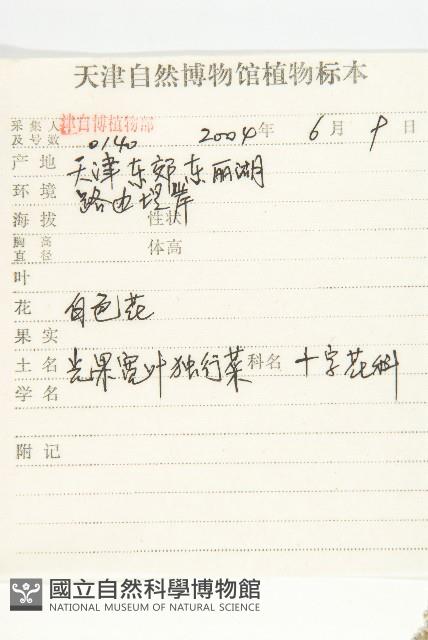 天津自然博物馆植物标本
采集人及号数 津自博植物部 0140 2004年 6月 9日
产地 天津东郊东丽湖
环境 路边堤岸
海拔 性状
胸高直径 体高
叶
花 白色花
果实
土名 光果宽叶独行菜 科名 十字花科
学名
附记
國立自然科學博物館
NATIONAL MUSEUM OF NATURAL SCIENCE